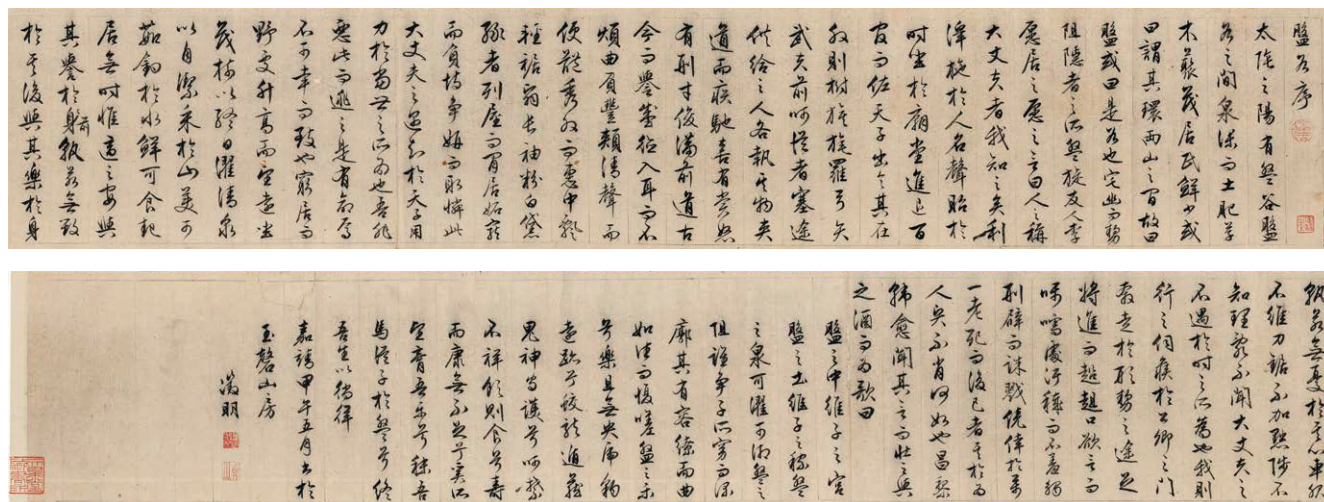 盤谷序
太行之陽有盤谷盤
谷之間泉深而土肥草
木藂茂居民鮮少或
曰謂其環兩山之間故曰
盤或曰是谷也宅幽而勢
阻隱者之所盤旋友人李
愿居之愿之言曰人之稱
大丈夫者我知之矣利
澤施於人名聲昭於
時坐於廟堂進退百
官而佐天子出令其在
外則樹旗旄羅弓矢
武夫前呵從者塞途
供給之人各執其物夾
道而疾馳喜有賞怒
有刑才俊滿前道古
今而譽盛德入耳而不
煩曲眉豐頰清聲而
便體秀外而惠中飄
輕裾翳長袖粉白黛
綠者列屋而閒居妬寵
而負恃爭妍而取憐此
大丈夫之遇知於天子用
力於當世之所為也吾非
惡此而逃之是有命焉
不可幸而致也窮居而
野處升高而望遠坐
茂樹以終日濯清泉
以自潔采於山美可
茹釣於水鮮可食起
居無時惟適之安與
其譽於身前孰若無毀
於其後與其樂於身
孰若無憂於其心車服
不維刀鋸不加黜陟不
知理亂不聞大丈夫之
不遇於時之所為也我則
行之伺候於公卿之門
奔走於形勢之途足
將進而趑趄口欲言而
囁嚅處汙穢而不羞觸
刑辟而誅戮僥倖於萬
一老死而後已者其於為
人賢不肖何如也昌黎
韓愈聞其言而壯之與
之酒而為歌曰
盤之中維子之宮
盤之土維子之稼盤
之泉可濯可湘盤之
阻誰爭子所窈而深
廓其有容繚而曲
如往而復嗟盤之樂
兮樂且無央虎豹
遠跡兮蛟龍遁藏
鬼神守護兮呵禁
不祥飲則食兮壽
而康無不足兮奚所
望膏吾車兮秣吾
馬從子於盤兮終
吾生以徜徉
嘉靖甲午五月書於
玉磬山房
徵明